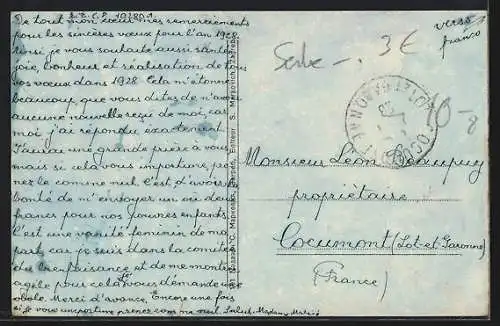 De tout mon cœur mes remerciements
pour les sincères vœux pour l'an 1928.
Ainsi je vous souhaite aussi santé
joie, bonheur et réalisation de tous
nos vœux dans 1928. Cela m'étonne
beaucoup, que vous dites de n'avoir
aucune nouvelle reçu de moi, car
moi j'ai répondu exactement.
J'aurai une grande prière à vous
mais si cela vous importune, pre-
nez le comme nul. c'est, d'avoir la
bonté de m'envoyer un
francs pour nos pauvres enfants.
C'est une vanité feminin de ma
part, car je suis dans la comitée
de bienfaisance et de me montre
agile pour cela vous demande une
obole. Merci d'avance. Encore une fois
si je vous importune prenez comme nul. Salut.
Serbe -. 3€
verso
franco
10-8
Monsieur Léon Beaupuy
propriétaire
Cocumont (Lot-et-Garonne)
(France)